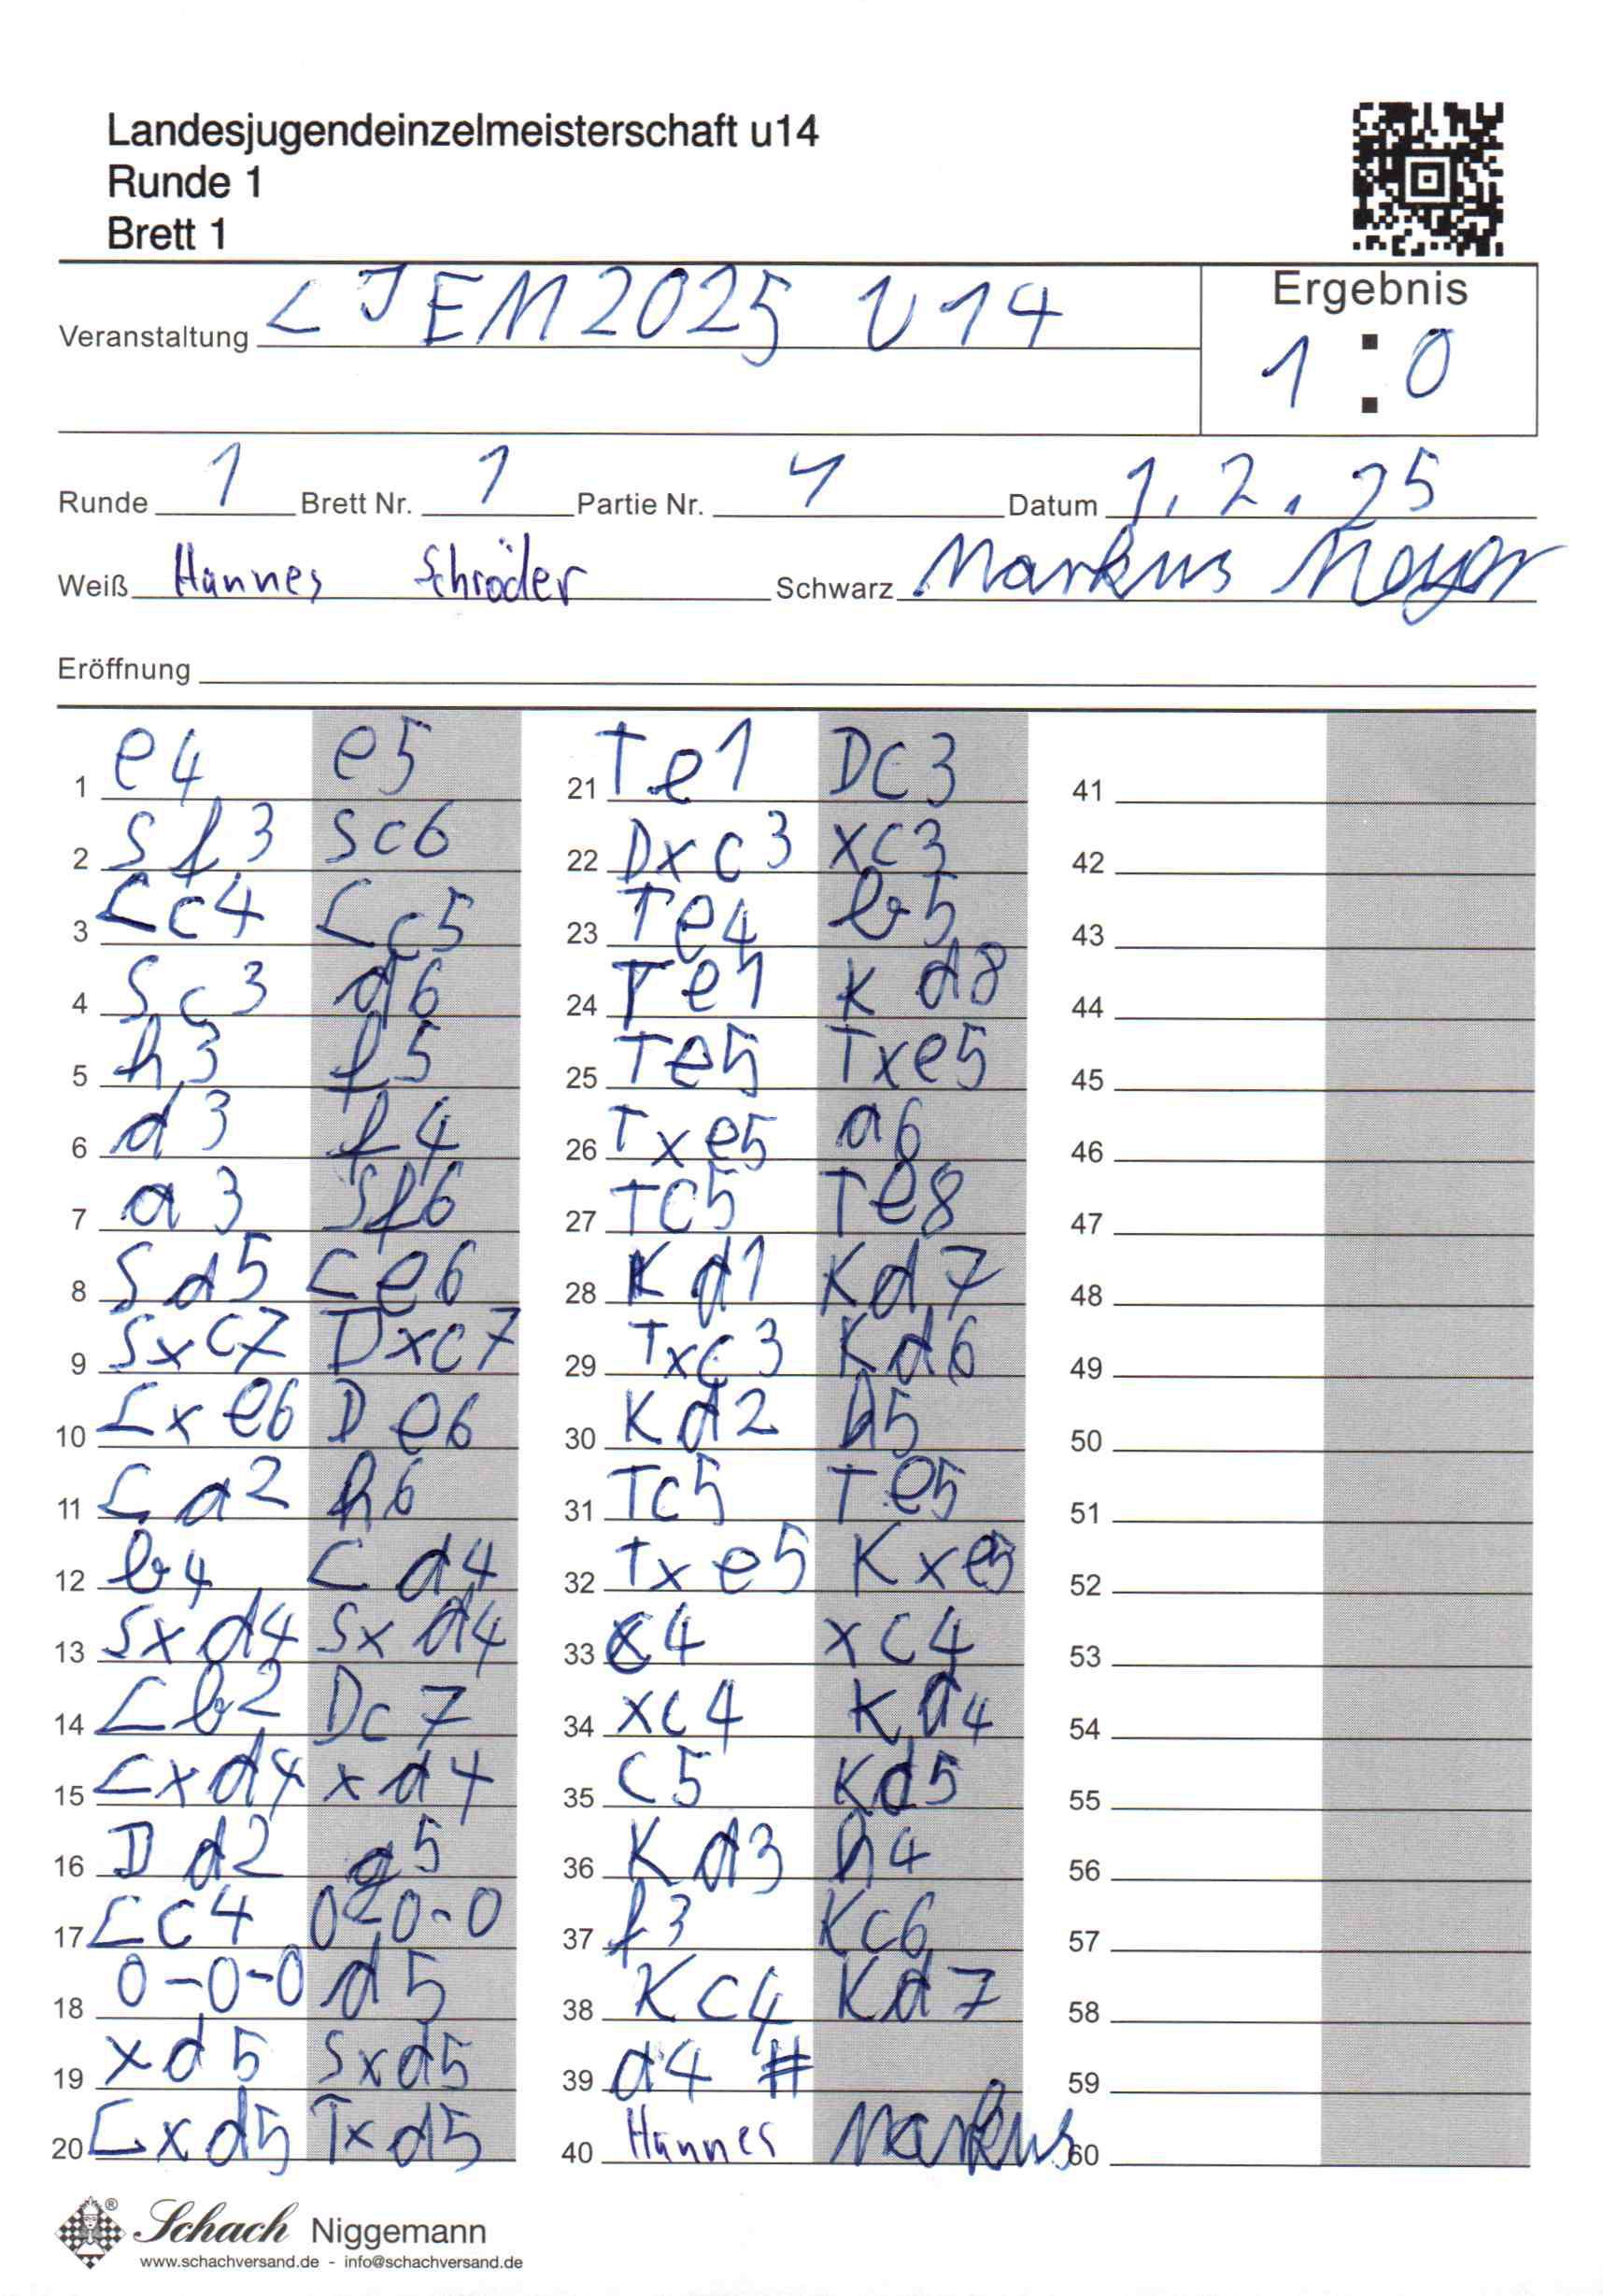 Landesjugendeinzelmeisterschaft u14
Runde 1
Brett 1
Veranstaltung LJEM2025 U14
Ergebnis
1 : 0
Runde 1 Brett Nr. 1 Partie Nr. 4 Datum 1.2.25
Weiß Hannes Schröder Schwarz Markus Meyer
Eröffnung
1 e4 e5 21 Te1 Dc3 41
2 Sf3 Sc6 22 Dxc3 xc3 42
3 Lc4 Lc5 23 Te4 b5 43
4 Sc3 d6 24 Te1 Kd8 44
5 h3 f5 25 Te5 Txe5 45
6 d3 f4 26 Txe5 a6 46
7 a3 Sf6 27 Tc5 Te8 47
8 Sd5 Le6 28 Kd1 Kd7 48
9 Sxc7 Dxc7 29 Txc3 Kd6 49
10 Lxe6 De6 30 Kd2 h5 50
11 La2 h6 31 Tc5 Te5 51
12 b4 Ld4 32 Txe5 Kxe5 52
13 Sxd4 Sxd4 33 c4 xc4 53
14 Lb2 Dc7 34 xc4 Kd4 54
15 Lxd4 xd4 35 c5 Kd5 55
16 Dd2 g5 36 Kd3 h4 56
17 Lc4 0-0-0 37 f3 Kc6 57
18 0-0-0 d5 38 Kc4 Kd7 58
19 xd5 Sxd5 39 d4 # 59
20 Lxd5 Txd5 40 Hannes Markus 60
Schach Niggemann
www.schachversand.de - info@schachversand.de